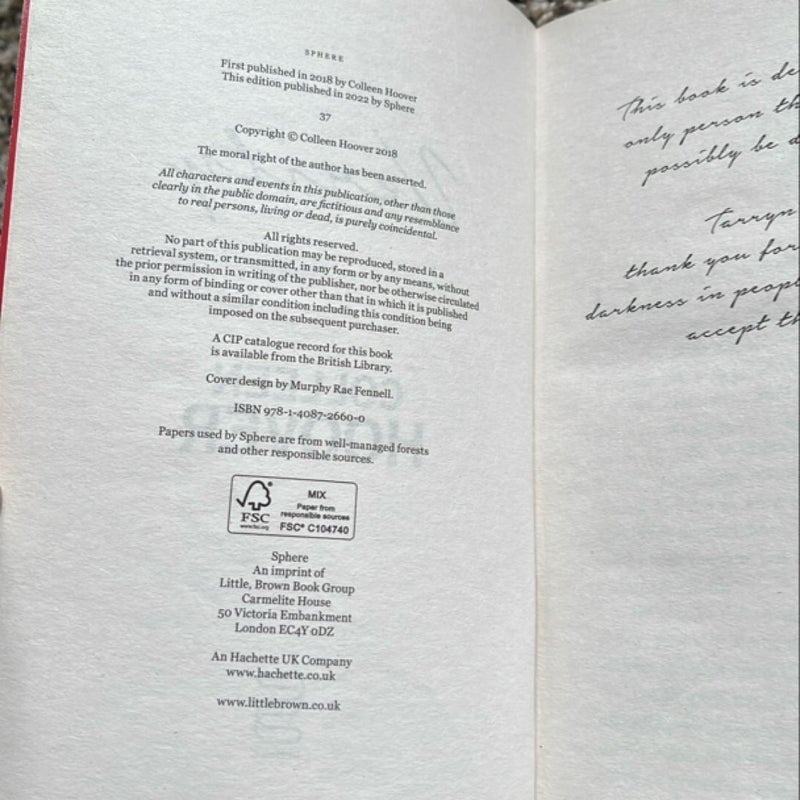 SPHERE
First published in 2018 by Colleen Hoover
This edition published in 2022 by Sphere
37
Copyright © Colleen Hoover 2018
The moral right of the author has been asserted.
All characters and events in this publication, other than those
clearly in the public domain, are fictitious and any resemblance
to real persons, living or dead, is purely coincidental.
All rights reserved.
No part of this publication may be reproduced, stored in a
retrieval system, or transmitted, in any form or by any means, without
the prior permission in writing of the publisher, nor be otherwise circulated
in any form of binding or cover other than that in which it is published
and without a similar condition including this condition being
imposed on the subsequent purchaser.
A CIP catalogue record for this book
is available from the British Library.
Cover design by Murphy Rae Fennell.
ISBN 978-1-4087-2660-0
Papers used by Sphere are from well-managed forests
and other responsible sources.
MIX
Paper from
responsible sources
FSC® C104740
FSC
www.fsc.org
Sphere
An imprint of
Little, Brown Book Group
Carmelite House
50 Victoria Embankment
London EC4Y 0DZ
An Hachette UK Company
www.hachette.co.uk
www.littlebrown.co.uk
This book is de
only person th
possibly be d
Tarryn
thank you for
darkness in peopl
accept th